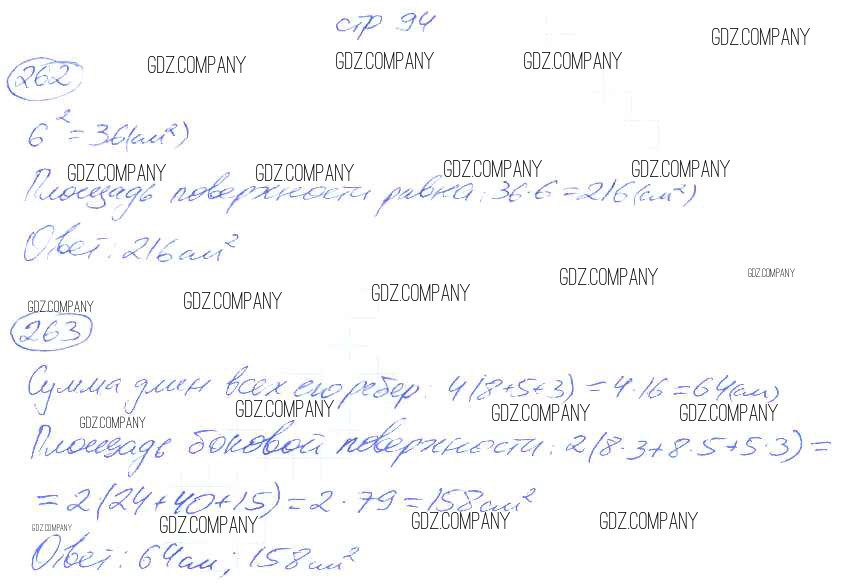 стр 94
GDZ.COMPANY
GDZ.COMPANY GDZ.COMPANY GDZ.COMPANY
262
6² = 36(см²)
GDZ.COMPANY GDZ.COMPANY GDZ.COMPANY GDZ.COMPANY
Площадь поверхности равна: 36·6 = 216(см²)
Ответ: 216 см²
GDZ.COMPANY GDZ.COMPANY
GDZ.COMPANY GDZ.COMPANY GDZ.COMPANY
263
Сумма длин всех его ребер: 4(8+5+3) = 4·16 = 64(см)
GDZ.COMPANY GDZ.COMPANY GDZ.COMPANY GDZ.COMPANY
Площадь боковой поверхности: 2(8·3+8·5+5·3) =
= 2(24+40+15) = 2·79 = 158 см²
GDZ.COMPANY GDZ.COMPANY GDZ.COMPANY GDZ.COMPANY
Ответ: 64 см; 158 см²